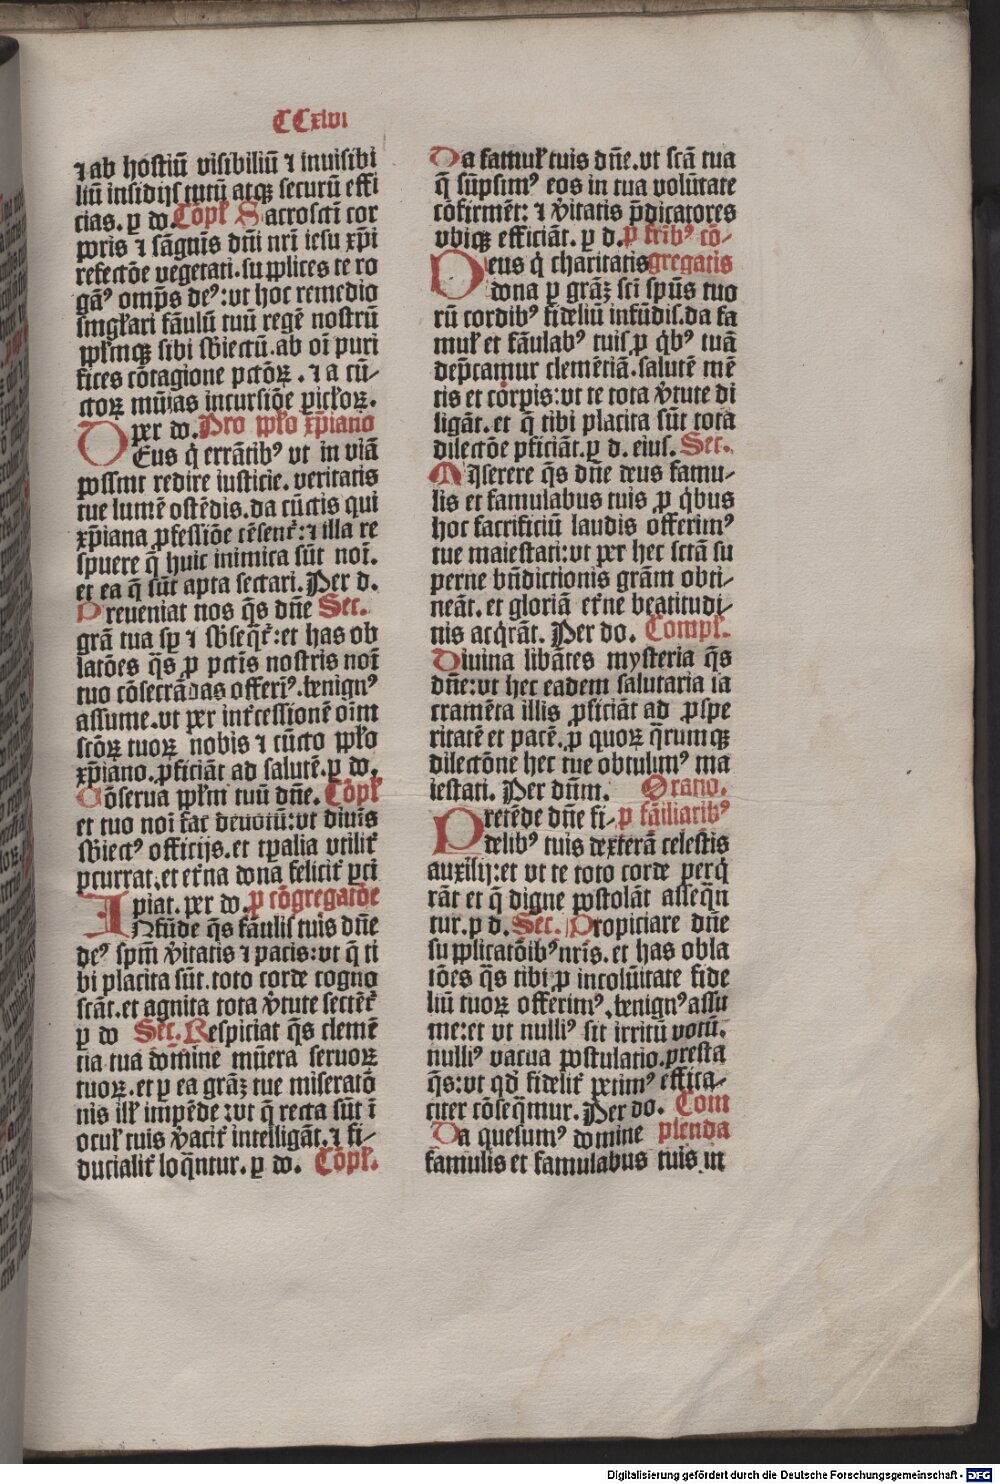 CCxlvi
⁊ ab hostiū visibiliū ⁊ inuisibi
liū insidijs tutū atqꝫ securū effi
cias. ꝑ do. Cōpł Sacroscti cor
poris ⁊ sāguis dn̄i nr̄i iesu xp̄i
refectōe vegetati. supplices te ro
gaꝰ omp̄s deꝰ: vt hoc remedio
singłari fāulū tuū regē nostrū
ppłmqꝫ sibi sb̄iectū. ab oī puri
fices cōtagione pctōꝝ. ⁊ a cū-
ctoꝝ mūias incursiōe picłoꝝ.
per do. Pro ppło xp̄iano
DEus q̇ errātibꝰ vt in viā
possint redire iusticie. veritatis
tue lumē ostēdis. da cūctis qui
xp̄iana ꝓfessiōe cēsent᷑: ⁊ illa re
spuere q̄ huic inimica sūt noī.
et ea q̄ sūt apta sectari. Per d.
Preueniat nos q̄s dn̄e Sec.
grā tua sꝑ ⁊ sb̄seq̄t᷑: et has ob
latōes q̄s ꝓ pctīs nostris noī
tuo cōsecrādas offerīꝰ. benignꝰ
assume. vt per int᷑cessionē oīm
scōꝝ tuoꝝ nobis ⁊ cūcto ppło
xp̄iano. ꝓficiāt ad salutē. ꝑ do.
Cōserua ppłm tuū dn̄e. Cōpł
et tuo noī fac deuotū: vt diuīs
sb̄iectꝰ officijs. et tp̄alia vtilit᷑
ꝑcurrat. et et᷑na dona felicit᷑ ꝑci
piat. per do. ꝓ cōgregatōe
INfūde q̄s fāulis tuis dn̄e
deꝰ spm̄ v̄itatis ⁊ pacis: vt q̄ ti
bi placita sūt. toto corde cogno
scāt. et agnita tota v̄tute sectēt᷑
ꝑ do Sec. Respiciat q̄s clemē
tia tua domine mūera seruoꝝ
tuoꝝ. et ꝑ ea grāꝫ tue miseratō
nis illʼ impēde: vt q̄ recta sūt ī
ocuł tuis v̄acit᷑ intelligāt. ⁊ fi-
ducialit᷑ loq̄ntur. ꝑ do. Cōpł.
Da famuł tuis dn̄e. vt scā tua
q̄ sūpsimꝰ eos in tua volūtate
cōfirmēt: ⁊ v̄itatis p̄dicatores
vbiqꝫ efficiāt. ꝑ d. ꝓ fr̄ibꝰ cō-
DEus q̇ charitatis gregatis
dona ꝑ grāꝫ scī spūs tuo
rū cordibꝰ fideliū infūdis. da fa
muł et fāulabꝰ tuis ꝓ q̇bꝰ tuā
dep̄camur clemētiā. salutē mē
tis et corpis: vt te tota v̄tute di
ligāt. et q̄ tibi placita sūt tota
dilectōe ꝑficiāt. ꝑ d. eius. Sec.
Miserere q̄s dn̄e deus famu-
lis et famulabus tuis ꝓ q̇bus
hoc sacrificiū laudis offerimꝰ
tue maiestati: vt per hec sctā su
perne bn̄dictionis grām obti-
neāt. et gloriā et᷑ne beatitudi-
nis acq̇rāt. Per do. Compł.
Diuina libātes mysteria q̄s
dn̄e: vt hec eadem salutaria sa
cramēta illis ꝓficiāt ad ꝓspe
ritatē et pacē. ꝓ quoꝝ q̄rumqꝫ
dilectōne hec tue obtulimꝰ ma
iestati. Per dn̄m. Oratio.
PRetēde dn̄e fi- ꝓ fāiliaribꝰ
delibꝰ tuis dexterā celestis
auxilij: et vt te toto corde perq̇
rāt et q̄ digne postolāt asseq̄n
tur. ꝑ d. Sec. Propiciare dn̄e
supplicatōibꝰ nr̄is. et has obla
tōes q̄s tibi ꝓ incolūitate fide
liū tuoꝝ offerimꝰ. benignꝰ assu
me: et vt nulliꝰ sit irritū votū.
nulliꝰ vacua postulatio. presta
q̄s: vt qd̓ fidelit᷑ petimꝰ effica-
citer cōseq̄mur. Per do. Com
Da quesumꝰ domine plenda
famulis et famulabus tuis in
Digitalisierung gefördert durch die Deutsche Forschungsgemeinschaft - DFG